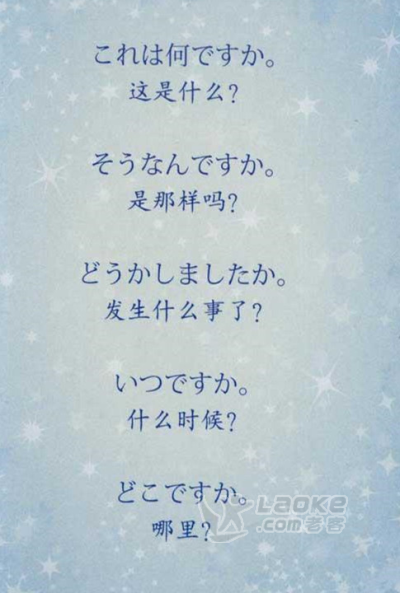 これは何ですか。
这是什么？
そうなんですか。
是那样吗？
どうかしましたか。
发生什么事了？
いつですか。
什么时候？
どこですか。
哪里？
Laoke
.com老客